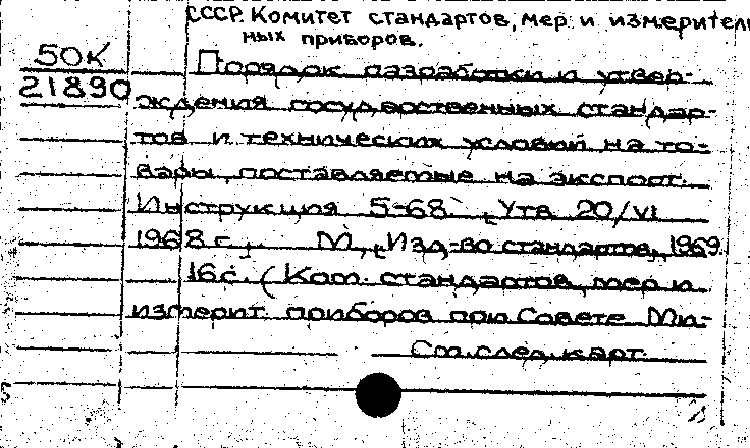 СССР. Комитет стандартов, мер и измеритель
ных приборов.
50К
21890
Порядок разработки и утвер-
ждения государственных стандар-
тов и технических условий на то-
вары, поставляемые на экспорт.
Инструкция 5-68. [Утв 20/VI
1968 г.]. М., [Изд-во стандартов, 1969.
16с. (Ком. стандартов, мер и
измерит. приборов при Совете Ми-
См. след. карт.